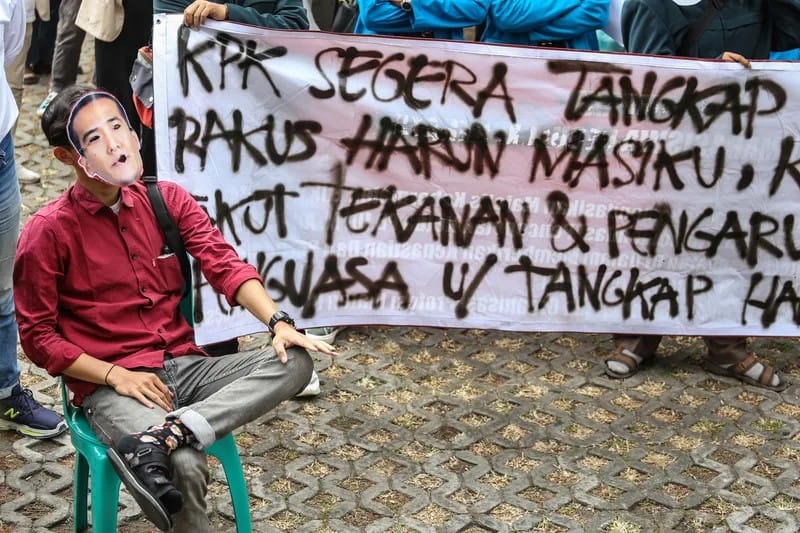 KPK SEGERA TANGKAP
RAKUS HARUN MASIKU, K
TEKANAN & PENGARU
NGUASA U/ TANGKAP HA